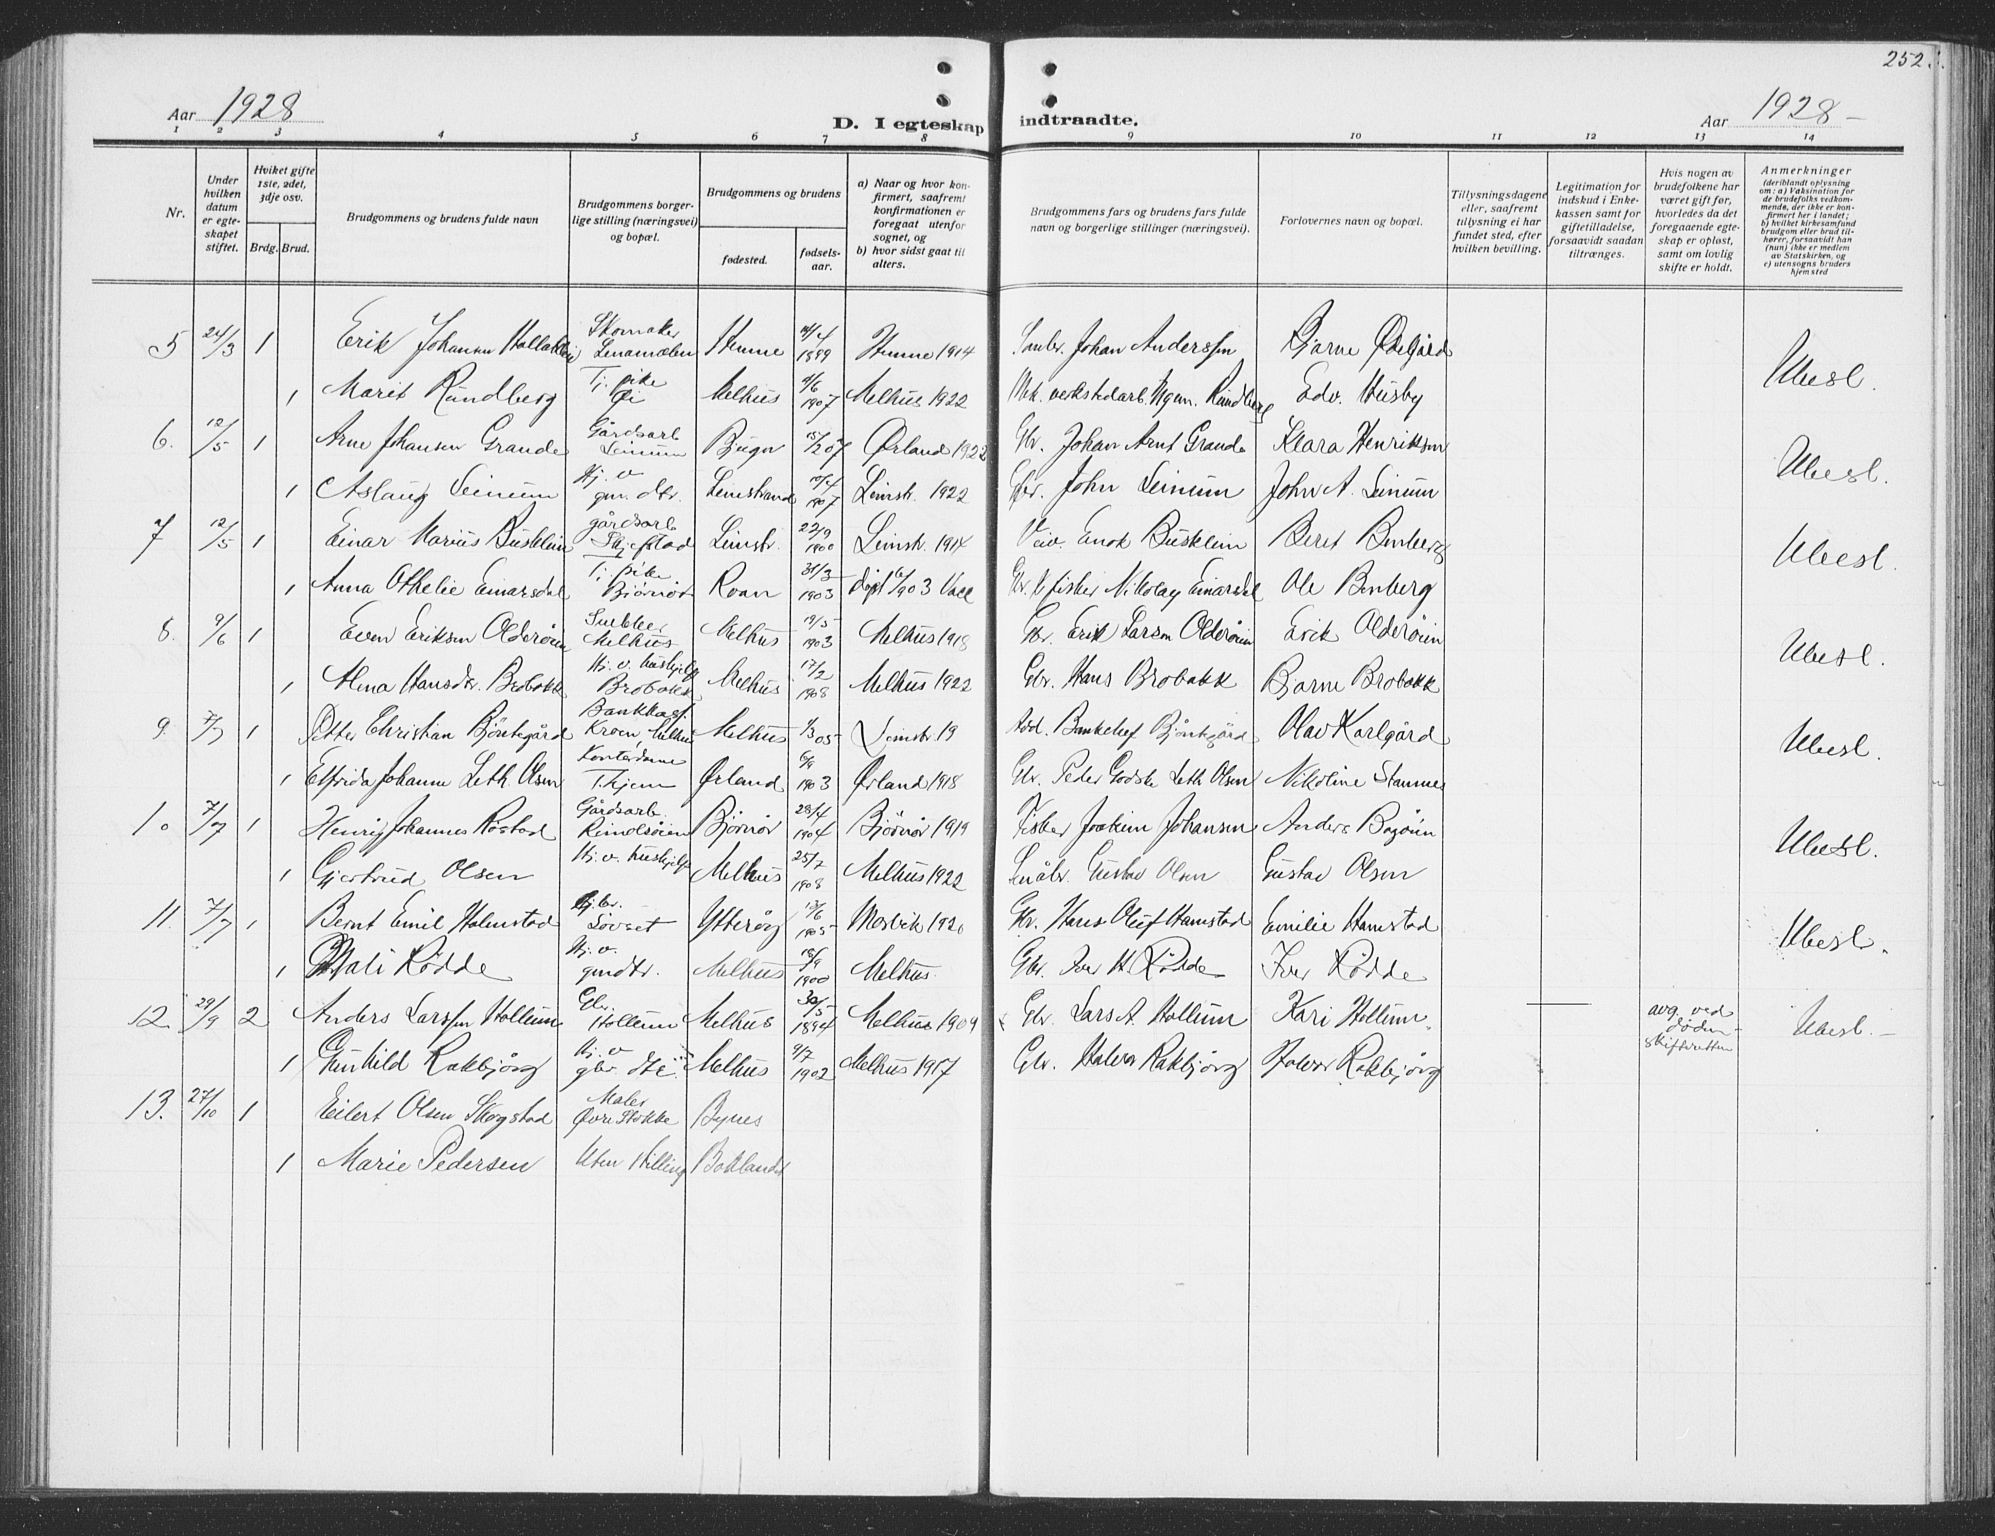 252
Aar 1928
D. I egteskap indtraadte.
Aar 1928
1 2 3 4 5 6 7 8 9 10 11 12 13 14
Nr.
Under hvilken datum er egteskapet stiftet.
Hviket gifte 1ste, 2det, 3dje osv.
Brdg. Brud.
Brudgommens og brudens fulde navn
Brudgommens borgerlige stilling (næringsvei) og bopæl.
Brudgommens og brudens
fødested.
fødselsaar.
a) Naar og hvor konfirmert, saafremt konfirmationen er foregaat utenfor sognet, og
b) hvor sidst gaat til alters.
Brudgommens fars og brudens fars fulde navn og borgerlige stillinger (næringsvei).
Forlovernes navn og bopæl.
Tillysningsdagene eller, saafremt tillysning ei har fundet sted, efter hvilken bevilling.
Legitimation for indskud i Enkekassen samt for giftetilladelse, forsaavidt saadan tiltrænges.
Hvis nogen av brudefolkene har været gift før, hvorledes da det foregaaende egteskap er opløst, samt om lovlig skifte er holdt.
Anmerkninger
(deriblandt oplysning om: a) Vaksination for de brudefolks vedkommende, der ikke er konfirmert her i landet; b) hvilket kirkesamfund brudgom eller brud tilhører, forsaavidt han (hun) ikke er medlem av Statskirken, og c) utensogns bruders hjemsted
5 24/3 1 Erik Johansen Skomaker Hemne 1899 Hemne 1914 Johan Anderssen Bjarne Ødegård Ubesl.
1 Marit Rundberg Tj. pike Øi Melhus 1907 Melhus 1922 Mek. verkstedarb. Rundberg Edv. Husby
6. 12/5 1 Arne Johansen Grande Gårdsarb Leinum Bjugn 15/2 07 Ørland 1922 Gbr. Johan Arnt Grande Klara Henriksen Ubesl.
1 Aslaug Leinum Hj. v. gm. dtr. Leinstrand 1907 Leinstr. 1922 Gbr. John Leinum John A. Leinum
7 12/5 1 Einar Marius Busklein gårdsarb Skjefstad Leinstr. 22/9 1900 Leinstr. 1914 Enok Busklein Beret Benberg Ubesl.
1 Anna Othelie Einarsdal Tj. pike Bjørnør Roan 31/3 1903 Nikolay Einarsdal Ole Benberg
8. 9/6 1 Even Eriksen Olderøien Melhus Melhus 19/5 1903 Melhus 1918 Gbr. Erik Larsen Olderøien Erik Olderøien Ubesl.
1 Hansdtr. Brobakk Hj. v. hushjelp Brobakk Melhus 17/2 1908 Melhus 1922 Gbr. Hans Brobakk Bjarne Brobakk
9. 7/7 1 Petter Christian Bjöntegård Melhus 1/3 05 Leinstr. 19 Bjöntegård Olav Karlgård Ubesl.
1 Elfrida Johanne Leth Olsen Kontordame Tr.hjem Ørland 1903 Ørland 1918 Gbr. Peder Godske Leth Olsen Nikoline Stamnes
10 7/7 1 Henrig Johannes Røstad Gårdsarb. Bjørnør 28/4 1904 Bjørnør 1919 Fisker Joakim Johansen Anders Ubesl.
1 Gjertrud Olsen Hj. v. hushjelp Melhus 25/7 1908 Melhus 1922 Småbr. Gustav Olsen Gustav Olsen
11. 7/7 1 Bernt Emil Hamstad Gbr. Løvset Ytterøy 1905 Mosvik 1920 Gbr. Hans Oluf Hamstad Emilie Hamstad Ubesl.
1 Mali Rødde Hj. v. gmdtr. Melhus 1900 Melhus. Gbr. Iver H. Rødde Iver Rødde
12. 29/9 2 Anders Larssen Hollum Gbr. Hollum Melhus 30/5 1894 Melhus 1909 Gbr. Lars A. Hollum Kari Hollum — avg. ved døden skifteretten Ubesl.
1 Gunhild Rakbjørg Hj. v. gbr. dtr. Melhus 9/7 1902 Melhus 1917 Gbr. Halvor Rakbjørg Halvor Rakbjørg
13. 27/10 1 Eilert Olsen Skogstad Maler Øvre Stokke Bynes
1 Marie Pedersen Uten stilling